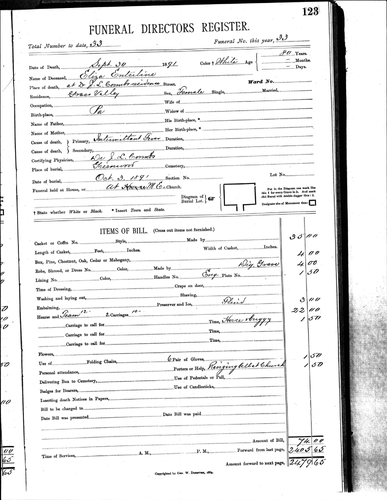 123
FUNERAL DIRECTORS REGISTER.
Total Number to date, 33 Funeral No. this year, 33
Date of Death, Sept 30 1891 Color * White Age 80 Years.
Months.
Days.
Name of Deceased, Eliza Enterline
Place of death, at Dr J. L. Combs residence Street, Ward No.
Residence, Grass Valley Sex, Female Single, Married.
Occupation, Wife of
Birth-place, Pa Widow of
Name of Father, His Birth-place *
Name of Mother, Her Birth-place *
Cause of death, Primary, Intermittent Fever Duration,
Cause of death, Secondary, Duration,
Certifying Physician, Dr J. L. Combs
Place of burial, Greenwood Cemetery,
Date of burial, Oct 3 1891 Section No. Lot No.
Funeral held at House or at House M. E. Church.
Diagram of Burial Lot.
* State whether White or Black. * Insert Town and State.
ITEMS OF BILL. (Cross out items not furnished.)
Casket or Coffin No. Style, Made by 35 00
Length of Casket, Feet, Inches. Width of Casket, Inches.
Box, Pine, Chestnut, Oak, Cedar or Mahogany, 4 00
Robe, Shroud, or Dress No. Color, Made by Dig Grave 4 00
Lining No. Color, Handles No. Eng. Plate No. 1 50
Time of Dressing, Crape on door,
Washing and laying out, Shaving,
Embalming, Preserver and Ice, Fluid 3 00
Hearse and Team 12 2 Carriages 10 22 00
Carriage to call for Time, Horse Buggy 1 50
Carriage to call for Time,
Carriage to call for Time,
Carriage to call for Time,
Flowers,
Use of Folding Chairs, 6 Pair of Gloves, 1 50
Personal attendance, Porters or Help, Ringing Bell at Church 1 50
Delivering Box to Cemetery, Use of Pedestals or Pall,
Badges for Bearers, Use of Candlesticks,
Inserting death Notices in Papers,
Bill to be charged to
Date Bill was presented Date Bill was paid
Amount of Bill, 74 00
Time of Services, A. M., P. M. Forward from last page, 2405 65
Amount forward to next page, 2479 65